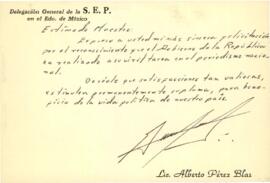 Delegación General de la S. E. P.
en el Edo. de México
Estimado Maestro:
Expreso a usted mi más sincera felicitación
por el reconocimiento que el Gobierno de la República
ha realizado a su
en el periodismo nacional.
Deséole que satisfacciones tan valiosas,
estimulen permanentemente su pluma, para
beneficio de la vida política de nuestro país.
Lic. Alberto Pérez Blas